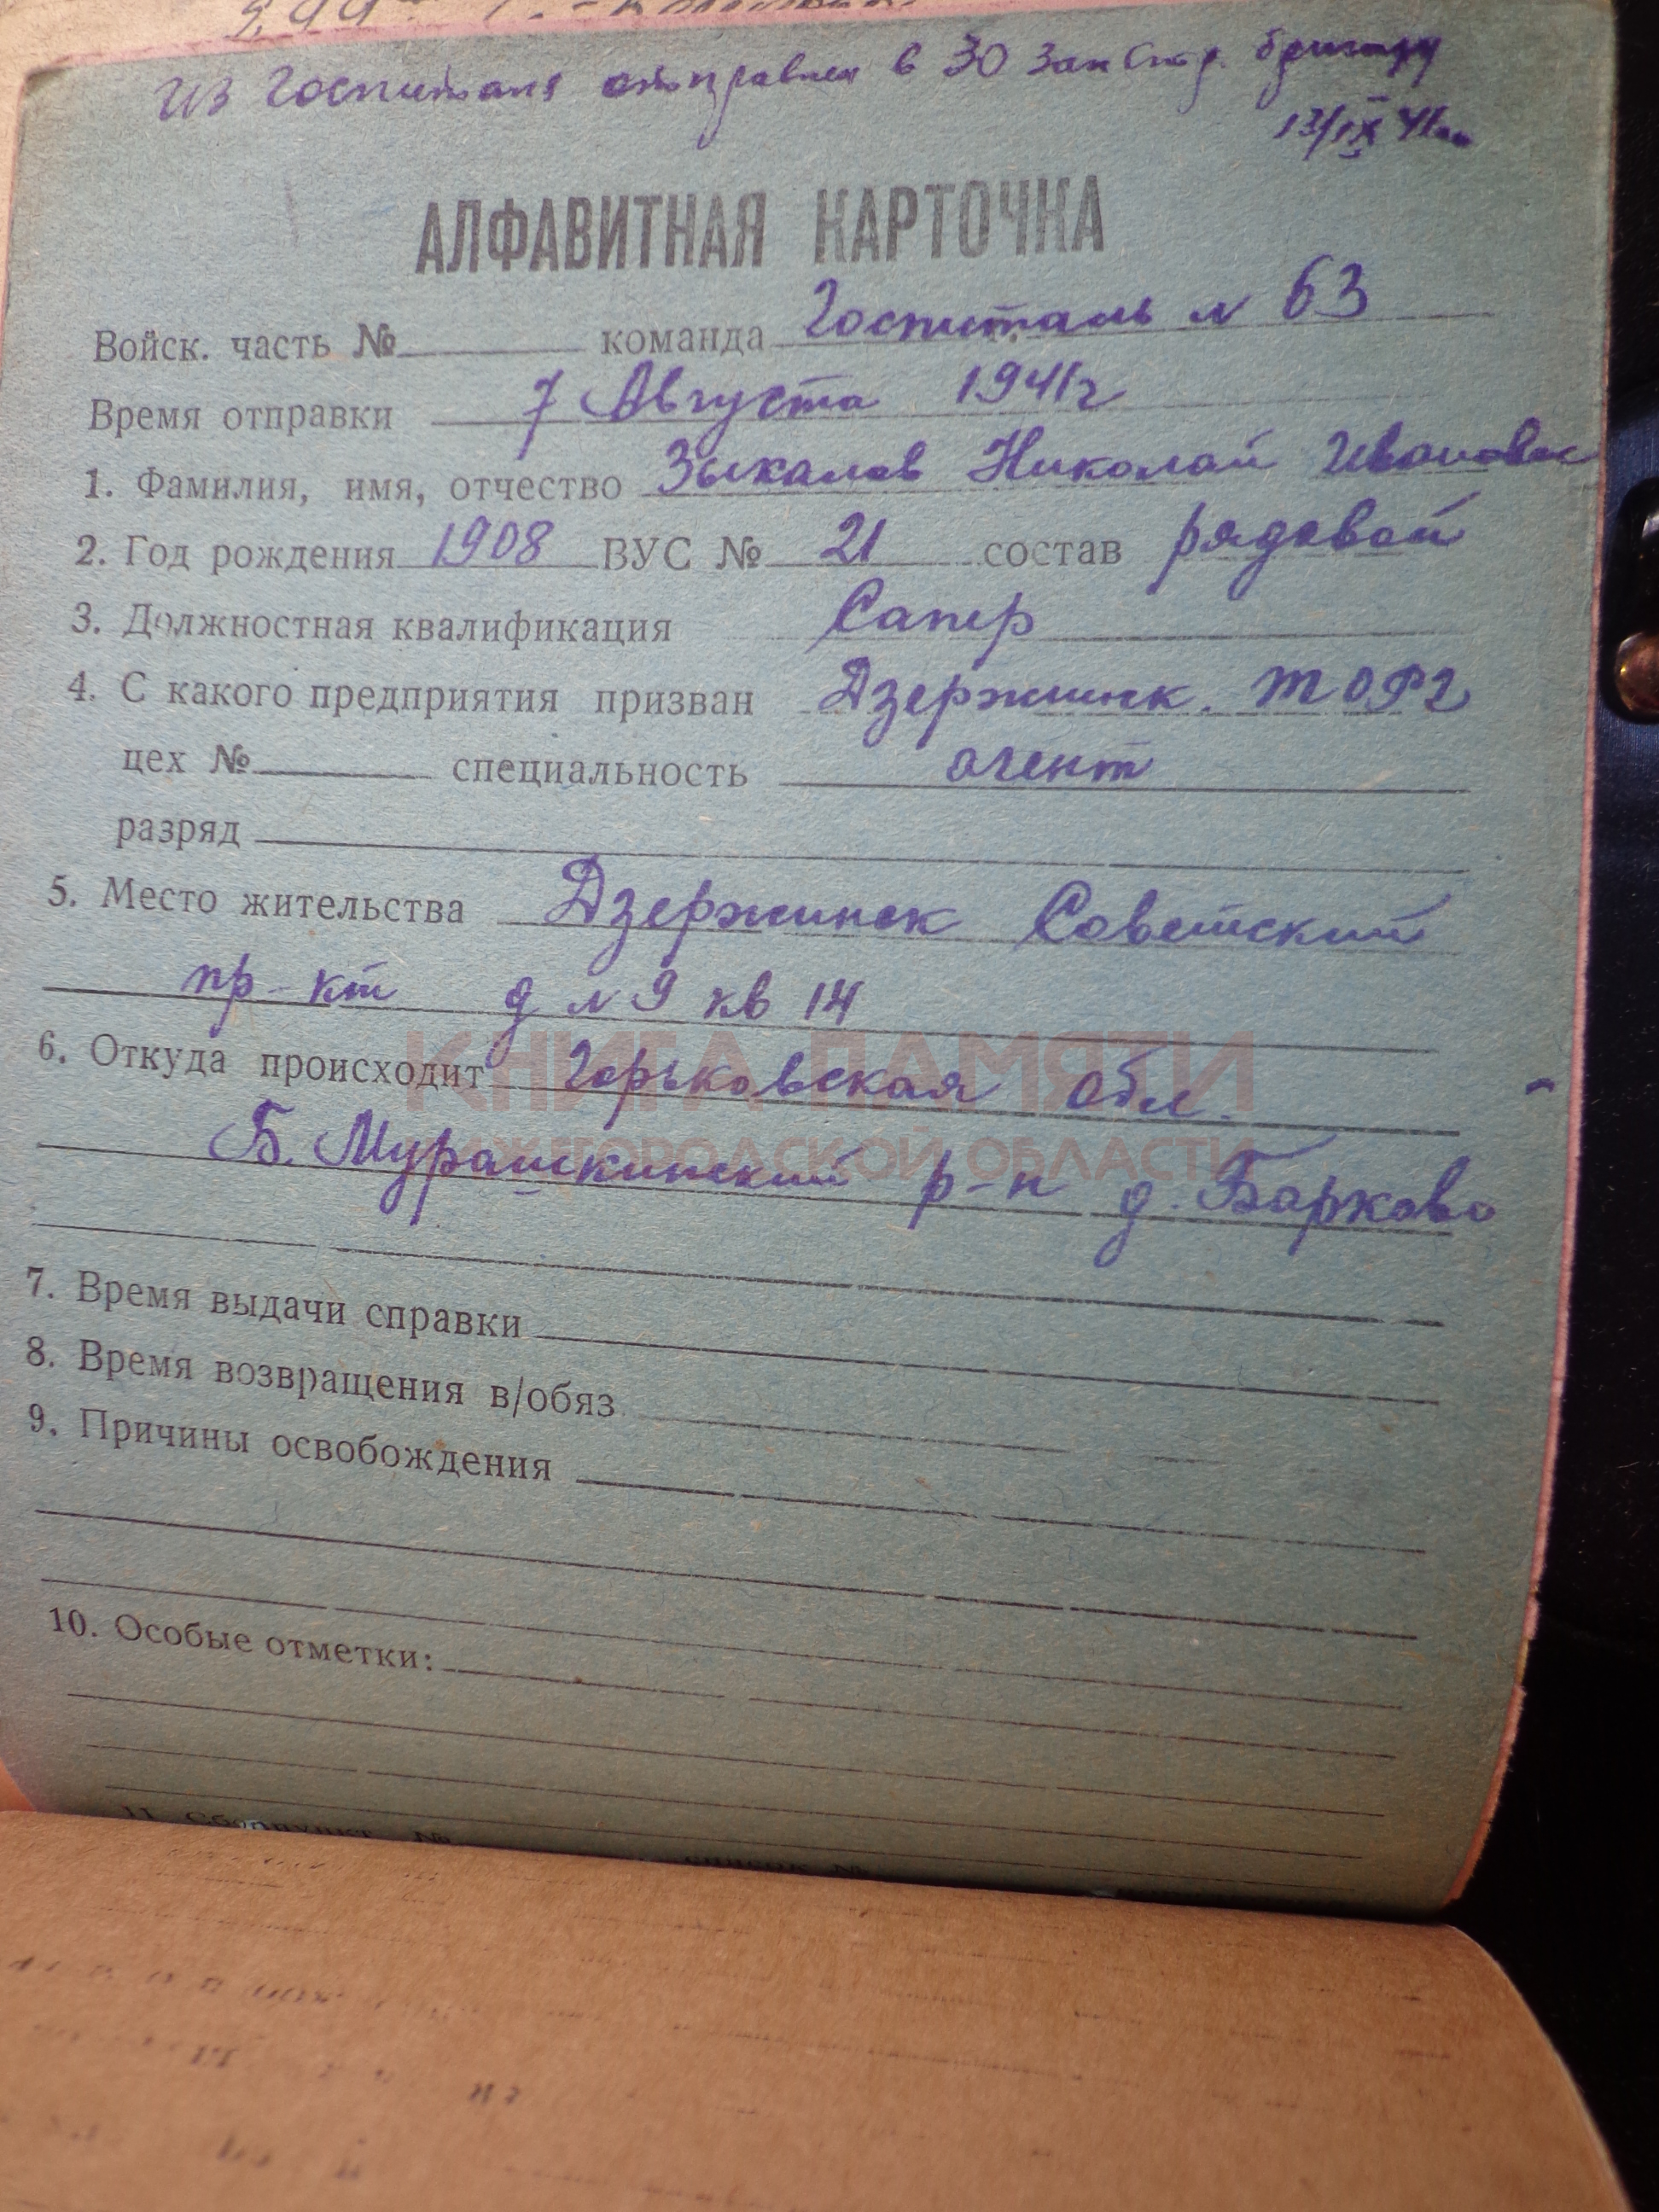 Из Госпиталя отправлен в 30 зап стр. бригаду
13/IX 41
АЛФАВИТНАЯ КАРТОЧКА
Войск. часть № команда Госпиталь N 63
Время отправки 7 Августа 1941г
1. Фамилия, имя, отчество Зыкалов Николай Иванович
2. Год рождения 1908 ВУС № 21 состав рядовой
3. Должностная квалификация Сапер
4. С какого предприятия призван Дзержинск. торг
цех № специальность агент
разряд
5. Место жительства Дзержинск Советский
пр-кт д N 9 кв 14
КНИГА ПАМЯТИ
6. Откуда происходит Горьковская обл.
НИЖЕГОРОДСКОЙ ОБЛАСТИ
Б. Мурашкинский р-н д. Барково
7. Время выдачи справки
8. Время возвращения в/обяз
9. Причины освобождения
10. Особые отметки:
11. Сборпункт № список №